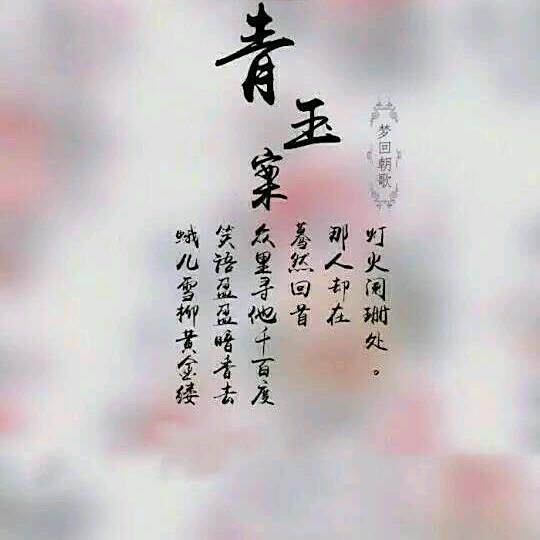 青玉案
梦回朝歌
蛾儿雪柳黄金缕
笑语盈盈暗香去
众里寻他千百度
蓦然回首
那人却在
灯火阑珊处。